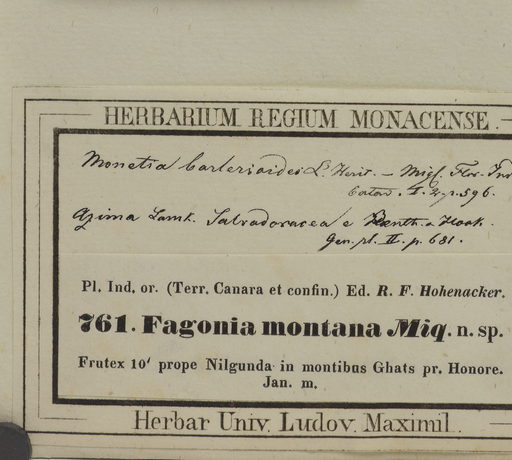 HERBARIUM REGIUM MONACENSE.
Monetia barlerioides L'Herit. – Miq. Flor. Ind.
batav. I. 2. p. 596.
Azima Lamk. Salvadoracea e Benth. & Hook.
Gen. pl. II. p. 681.
Pl. Ind. or. (Terr. Canara et confin.) Ed. R. F. Hohenacker.
761. Fagonia montana Miq. n. sp.
Frutex 10' prope Nilgunda in montibus Ghats pr. Honore.
Jan. m.
Herbar Univ. Ludov. Maximil.